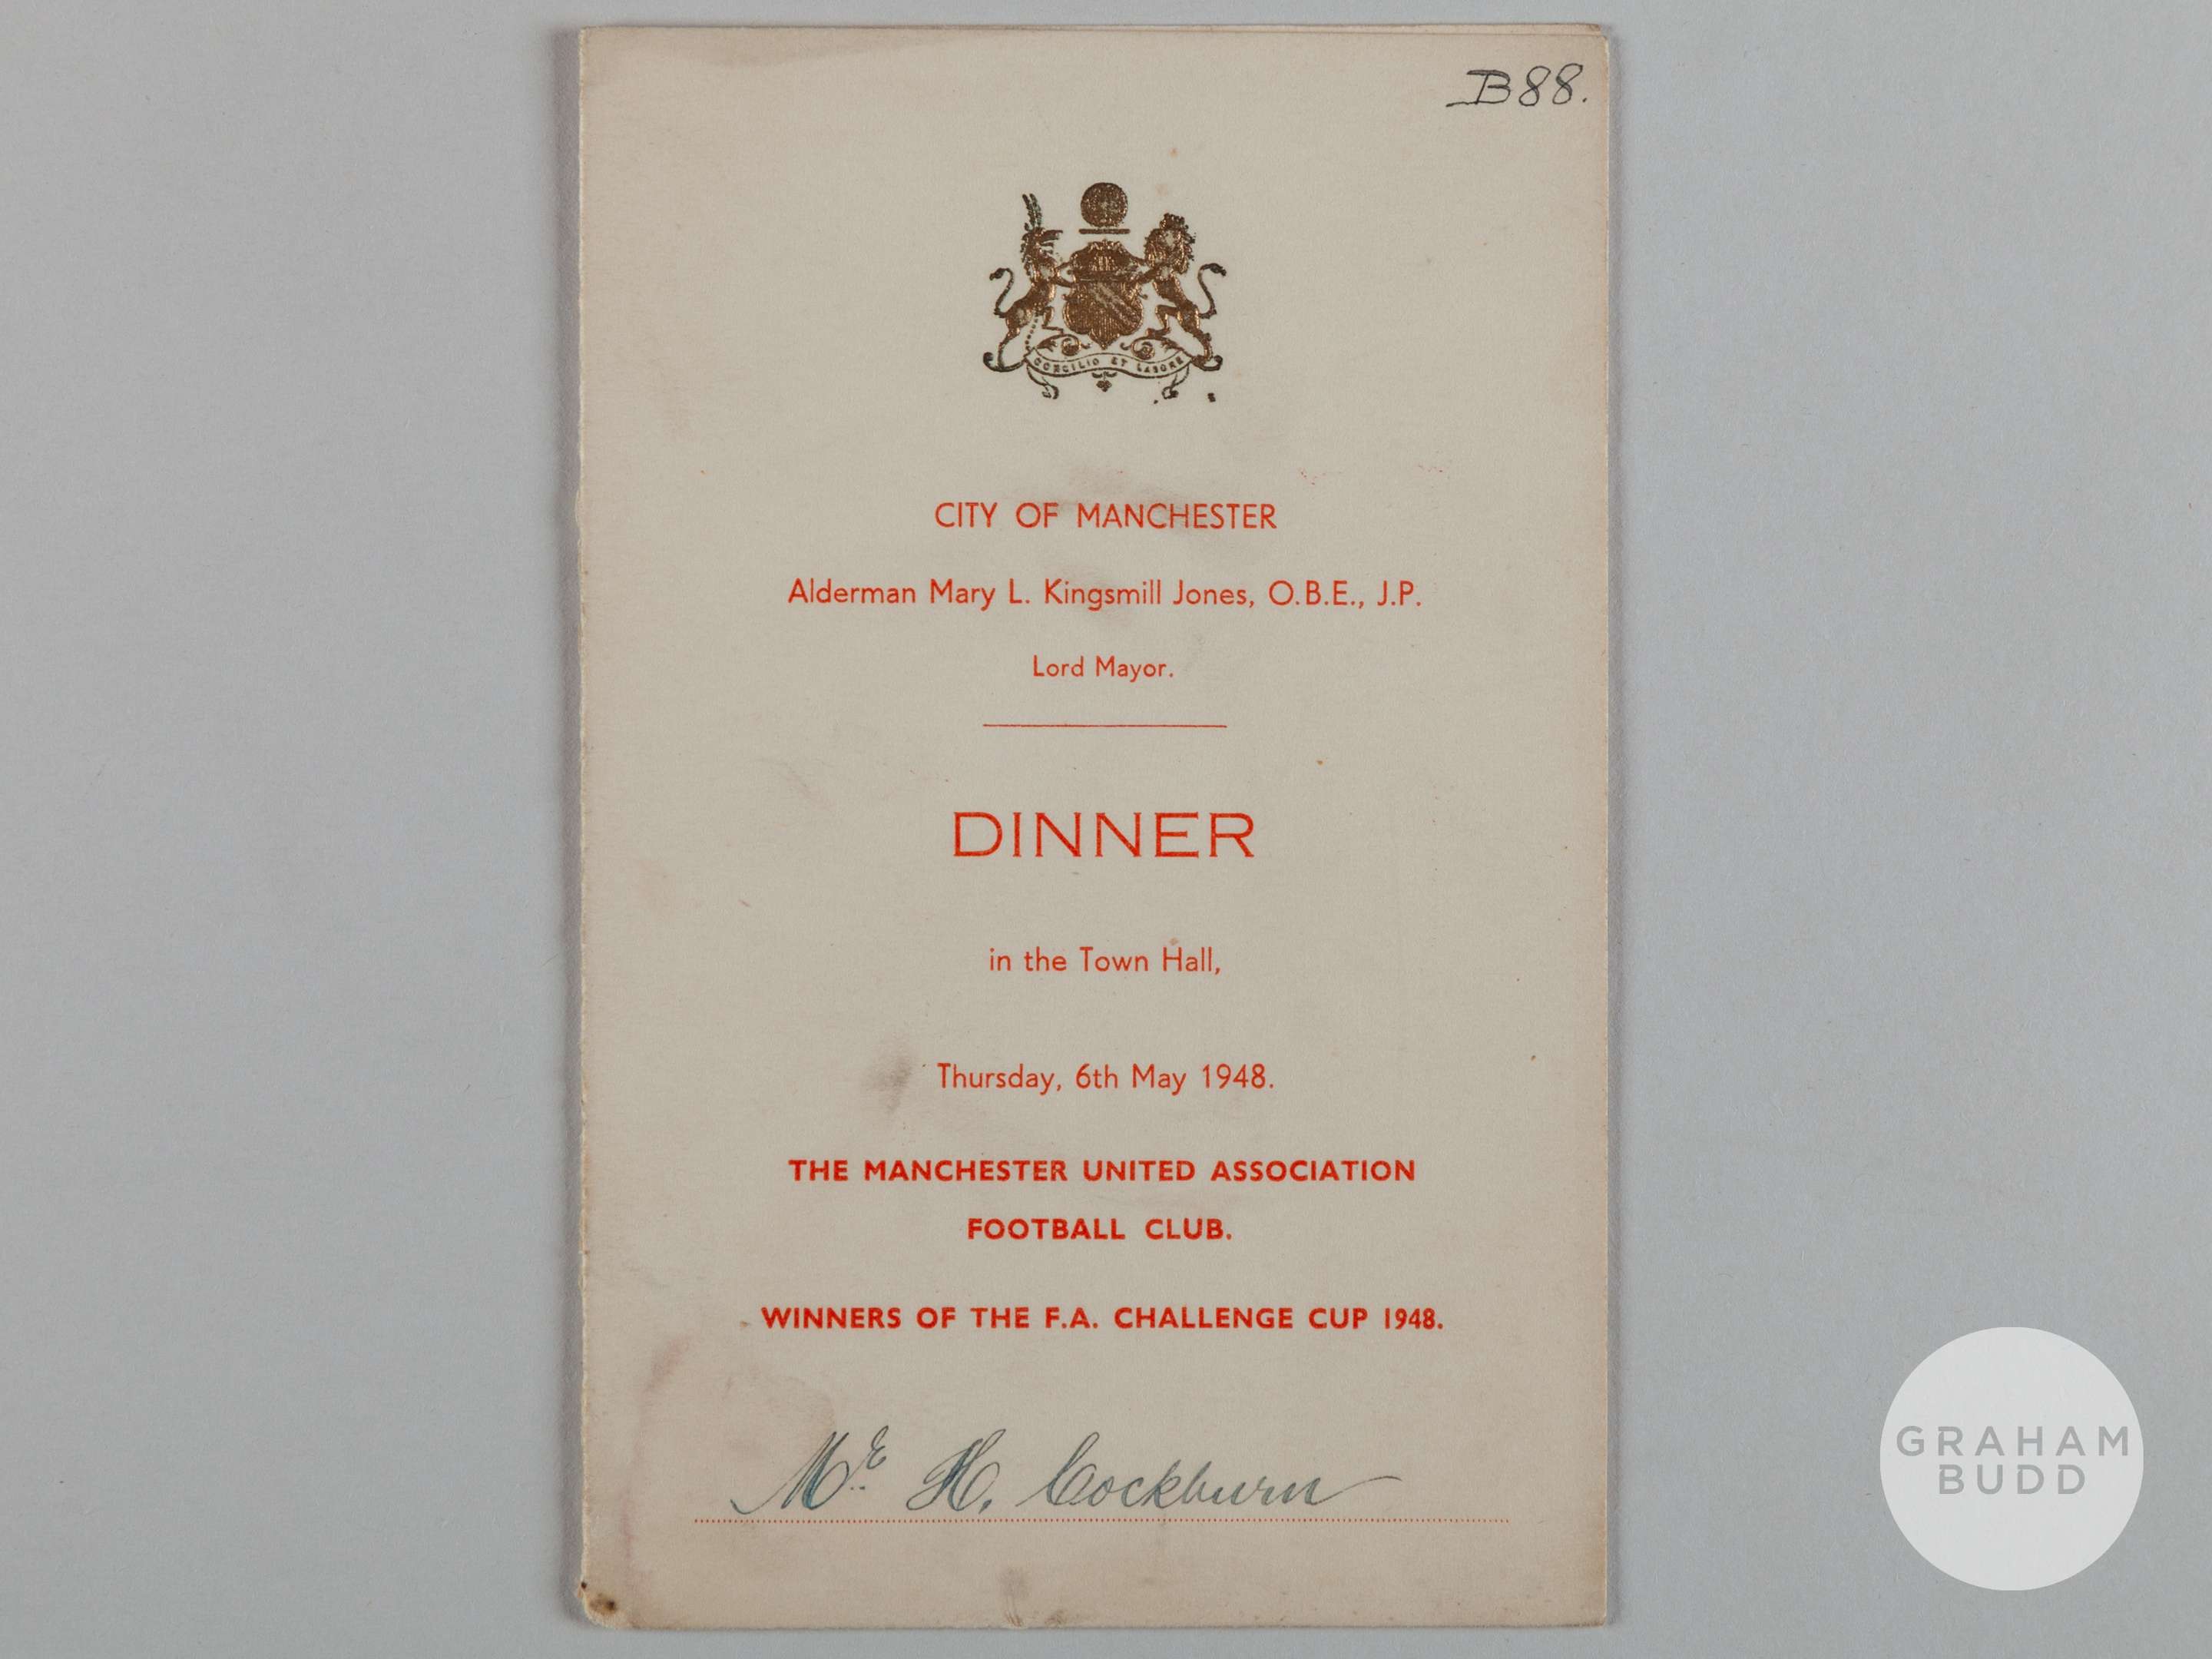 B88.
CONCILIO ET LABORE
CITY OF MANCHESTER
Alderman Mary L. Kingsmill Jones, O.B.E., J.P.
Lord Mayor.
DINNER
in the Town Hall,
Thursday, 6th May 1948.
THE MANCHESTER UNITED ASSOCIATION
FOOTBALL CLUB.
WINNERS OF THE F.A. CHALLENGE CUP 1948.
Mr. H. Cockburn
GRAHAM
BUDD